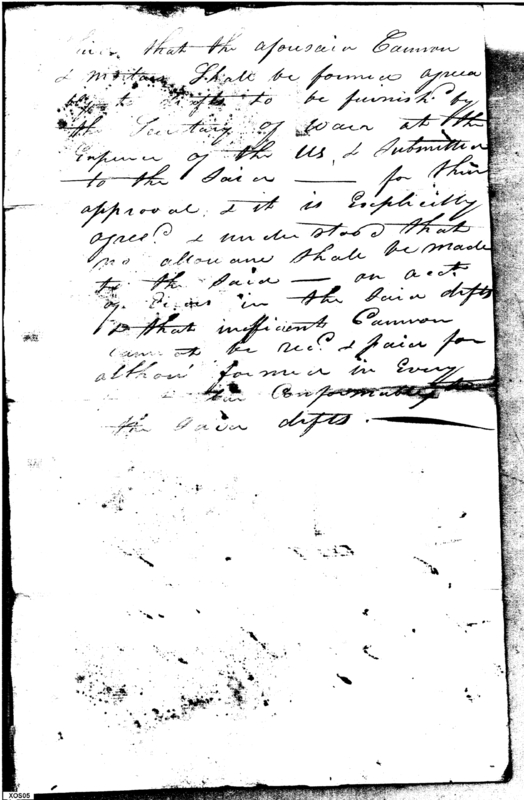 that the aforesaid Cannon
& mortars Shall be formed agrea
to drafts to be furnish'd by
the Secretary of War at the
Expence of the US, & Submitted
to the Said —— for their
approval, & it is Explicitly
agree'd & understood that
no allowance shall be made
to the Said — on acct.
of Errors in the Said dfts
& that inefficient Cannon
cannot be rec'd & paid for
altho' formed in Every
Conformably to
the Said dfts.
XOS05